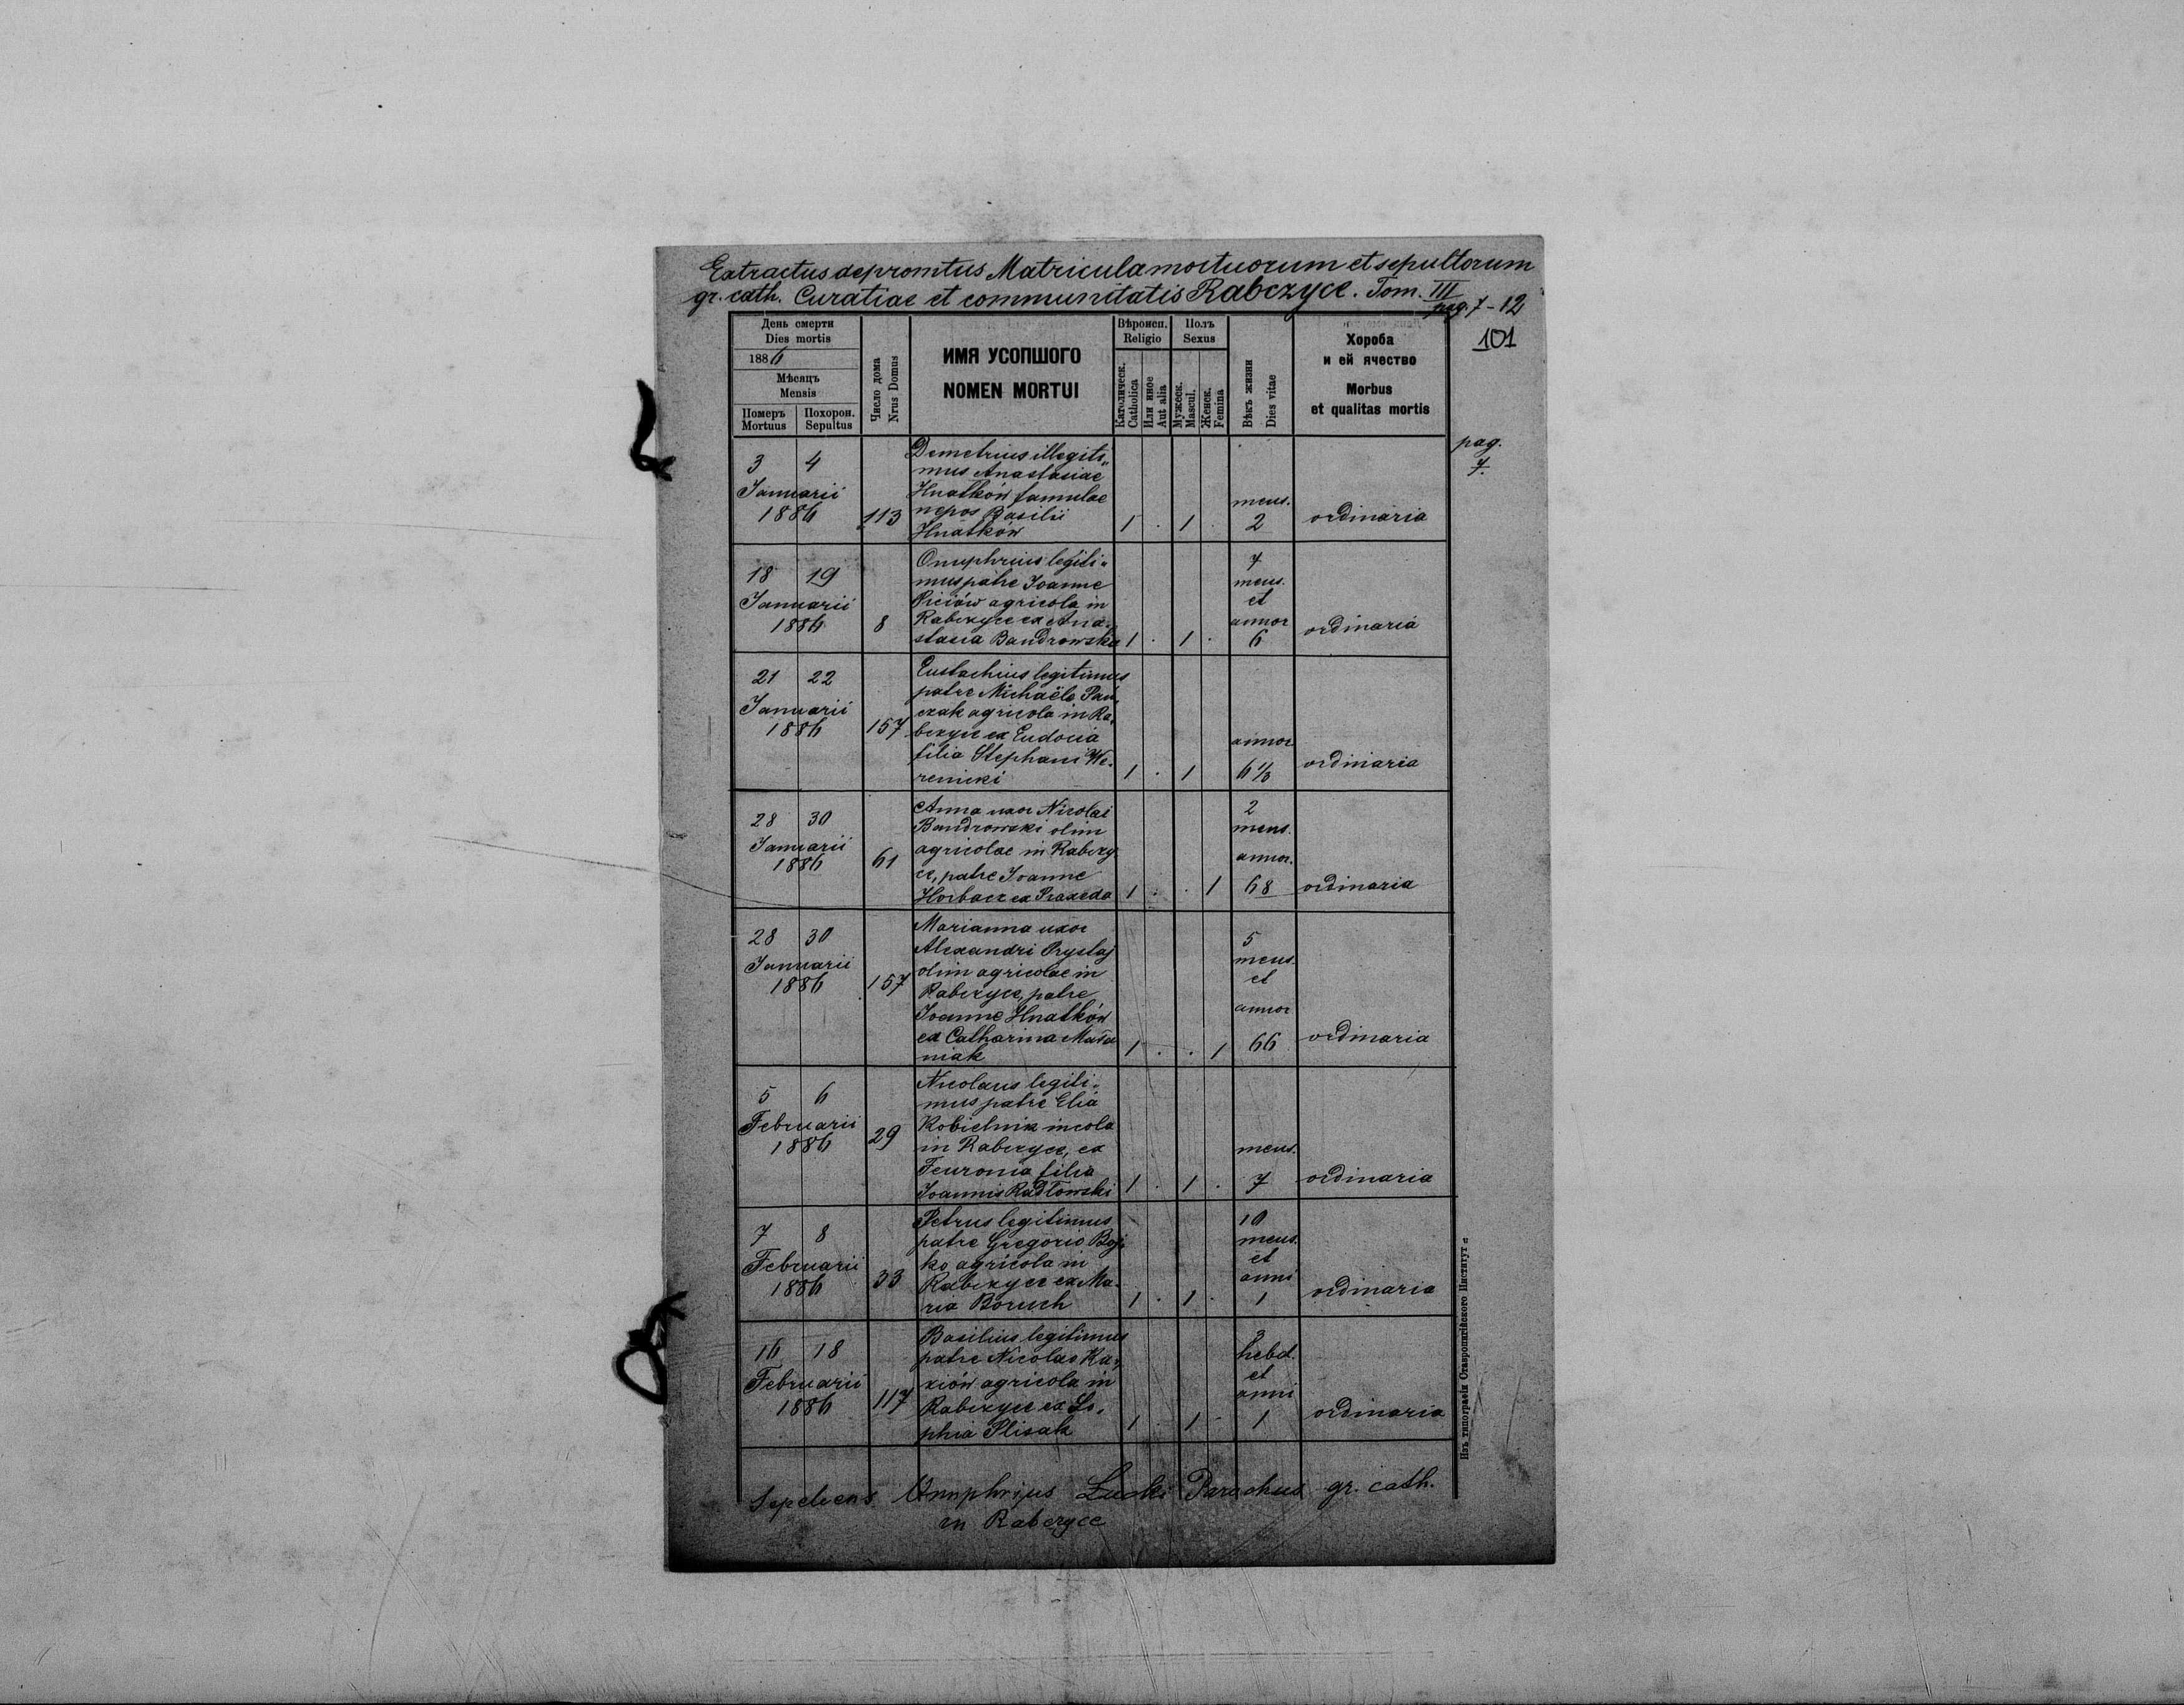 Extractus depromtus Matricula mortuorum et sepultorum
gr. cath. Curatiae et communitatis Rabczyce. Tom. III
pag. 7-12
101
День смерти
Dies mortis
1886
Мѣсяцъ
Mensis
Померъ Похорон.
Mortuus Sepultus
Число дома
Nrus Domus
ИМЯ УСОПШОГО
NOMEN MORTUI
Вѣроисп.
Religio
Католическ.
Catholica
Или иное
Aut alia
Полъ
Sexus
Мужеск.
Mascul.
Женск.
Femina
Вѣкъ жизни
Dies vitae
Хороба
и ей ячество
Morbus
et qualitas mortis
pag.
7.
3 4
Januarii
1886
113
Demetrius illegiti„
mus Anastasiae
Hnatków famulae
nepos Basilii
Hnatków
1 . 1 .
mens.
2
ordinaria
18 19
Januarii
1886
8
Onuphrius legiti„
mus patre Joanne
agricola in
Rabczyce ex Ana„
stasia Bandrowska
1 . 1 .
7
mens.
et
annor
6
ordinaria
21 22
Januarii
1886
157
Eustachius legitimus
patre Michaële Pań„
czak agricola in Ra„
bczyce ex Eudocia
filia Stephani We„
renicki
1 . 1
annor
6 1/3
ordinaria
28 30
Januarii
1886
61
Anna uxor Nicolai
Bandrowski olim
agricolae in Rabczy
ce, patre Joanne
Horbacz ex Praxeda
1 . . 1
2
mens.
annor.
68
ordinaria
28 30
Januarii
1886
157
Marianna uxor
Alexandri Prystaj
olim agricolae in
Rabczyce, patre
Joanne Hnatków
ex Catharina
niak
1 . . 1
5
mens.
et
annor
66
ordinaria
5 6
Februarii
1886
29
Nicolaus legiti„
mus patre Elia
Kobielnik incola
in Rabczyce, ex
Feuronia filia
Joannis Radłowski
1 . 1 .
mens.
7
ordinaria
7 8
Februarii
1886
33
Petrus legitimus
patre Gregorio Boj„
ko agricola in
Rabczyce ex Ma„
ria Boruch
1 . 1 .
10
mens.
et
anni
1
ordinaria
16 18
Februarii
1886
117
Basilius legitimus
patre Nicolao Ka„
ziów agricola in
Rabczyce ex So„
phia Plisak
1 . 1 .
3
hebd.
et
anni
1
ordinaria
Sepeliens Onuphrius Lucki Parochus gr. cath.
in Rabczyce
Изъ типографіи Ставропигійского Института